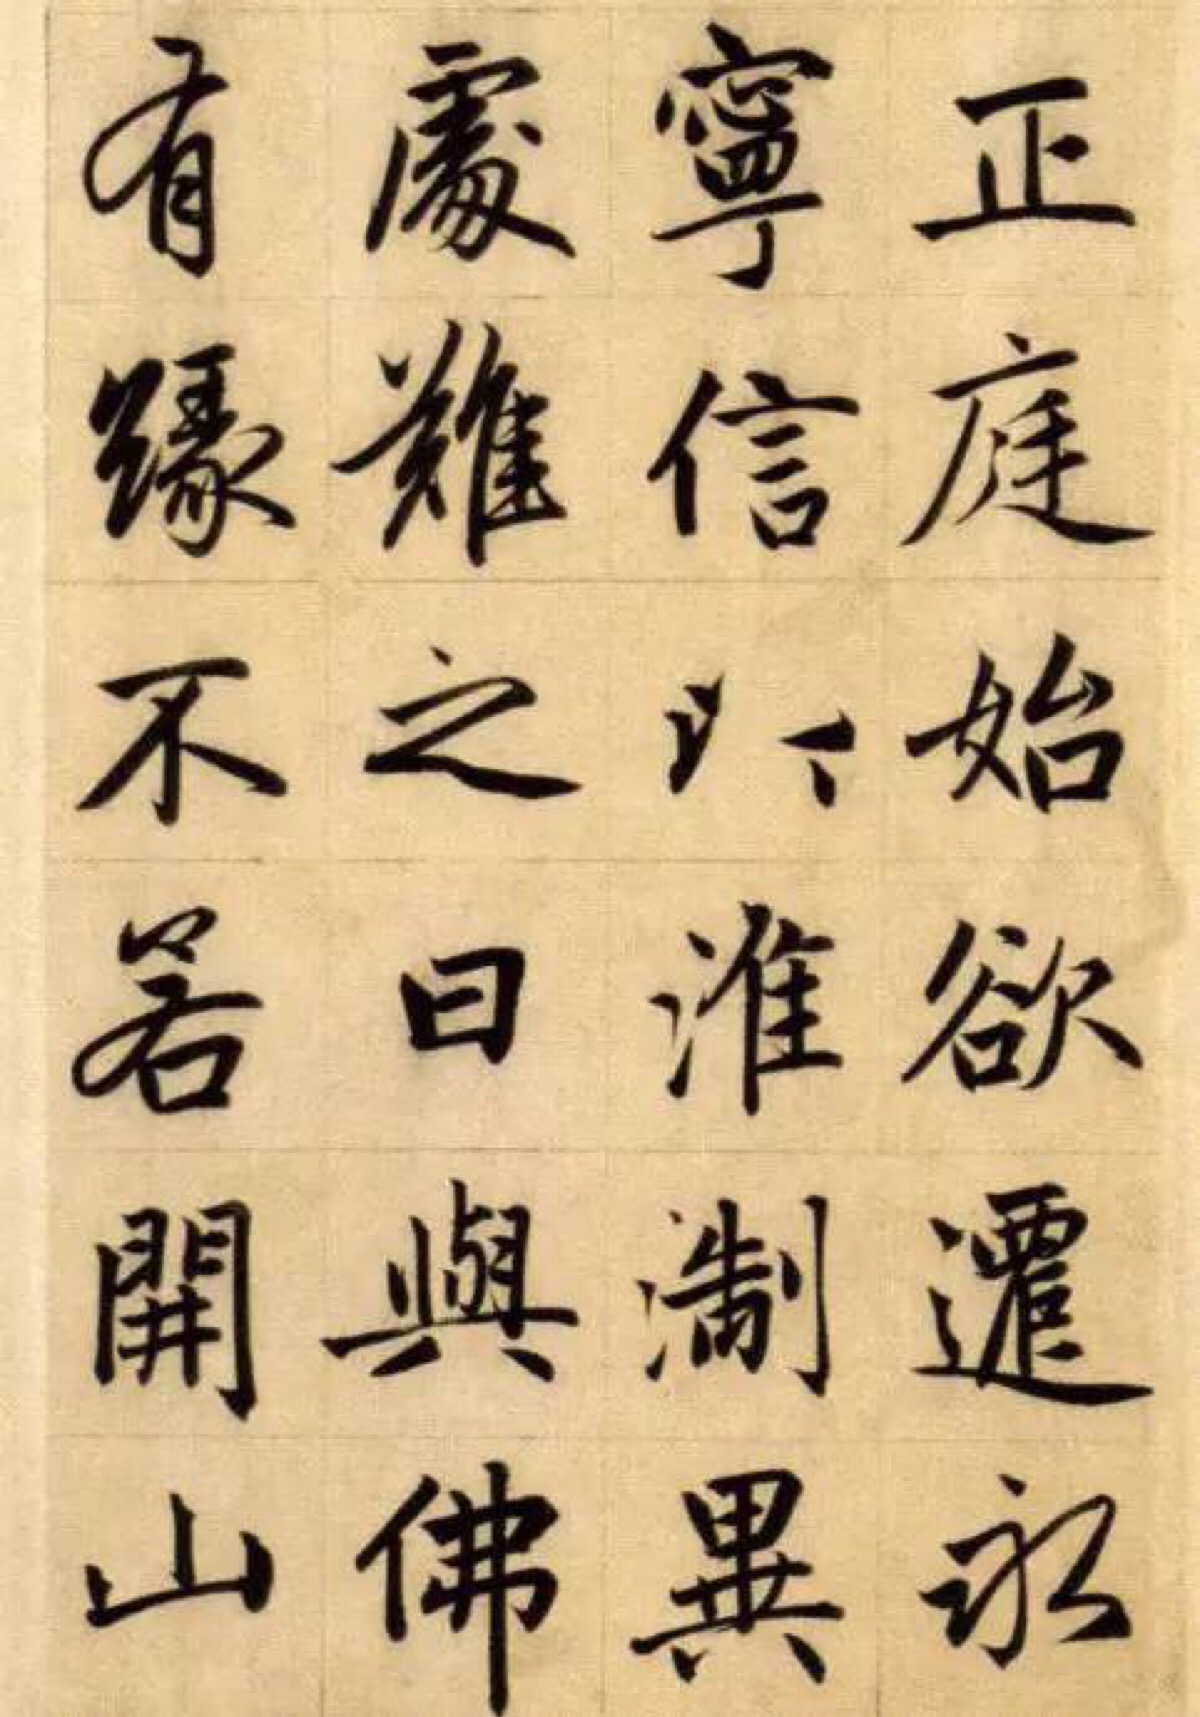 正庭始欲遷永
寧信以淮淛異
處難之曰與佛
有緣不若開山